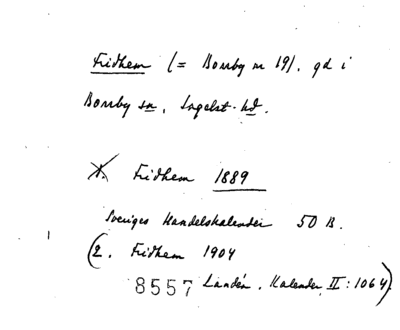 Fridhem (= Bomby nr 19). gd i
Bomby sn, Ingelst. hd.
1. Fridhem 1889
Sveriges Handelskalender 50 B.
(2. Fridhem 1904
8557 Landén, Kalender II: 1064)